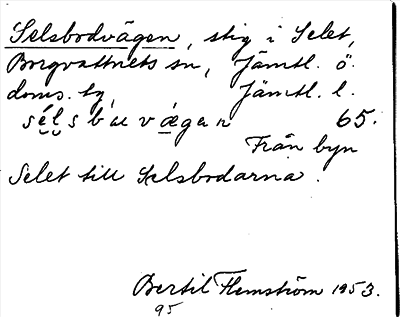 Selsbodvägen, stig i Selet,
Borgvattnets sn, Jämtl. ö.
doms. tg Jämtl. l.
sélsbuvǽgen 65.
Från byn
Selet till Selsbodarna.
Bertil Flemström 1953.
95